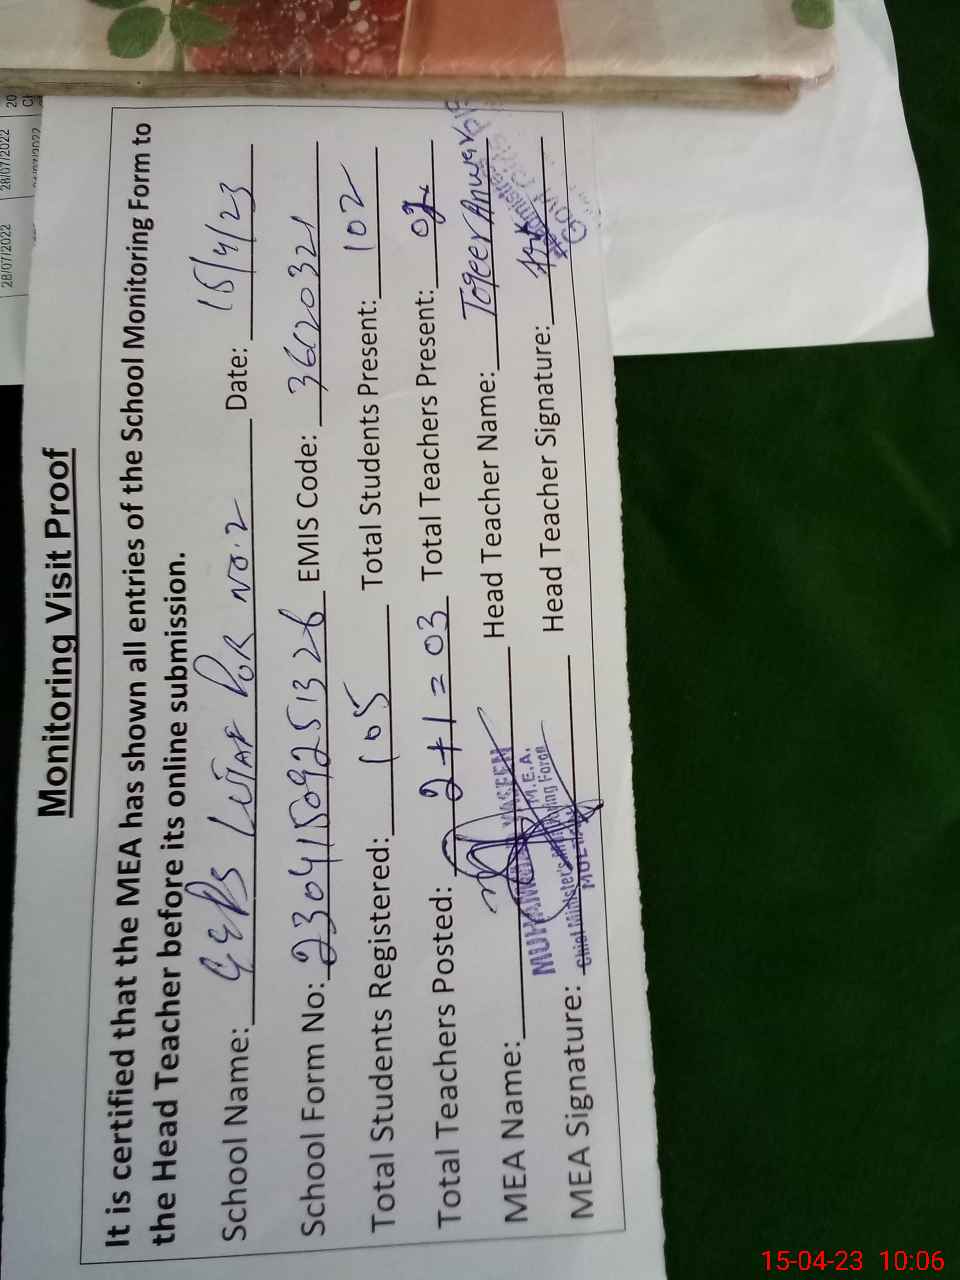 28/07/2022
28/07/2022
20
Monitoring Visit Proof
It is certified that the MEA has shown all entries of the School Monitoring Form to
the Head Teacher before its online submission.
School Name: GEPS No.2 Date: 15/4/23
School Form No: 23041509251326 EMIS Code: 36120321
Total Students Registered: 105 Total Students Present: 102
Total Teachers Posted: 2+1=03 Total Teachers Present:
MEA Name: Head Teacher Name: Anwar
MEA Signature: Head Teacher Signature:
M.E.A.
Chief Minister's
15-04-23 10:06